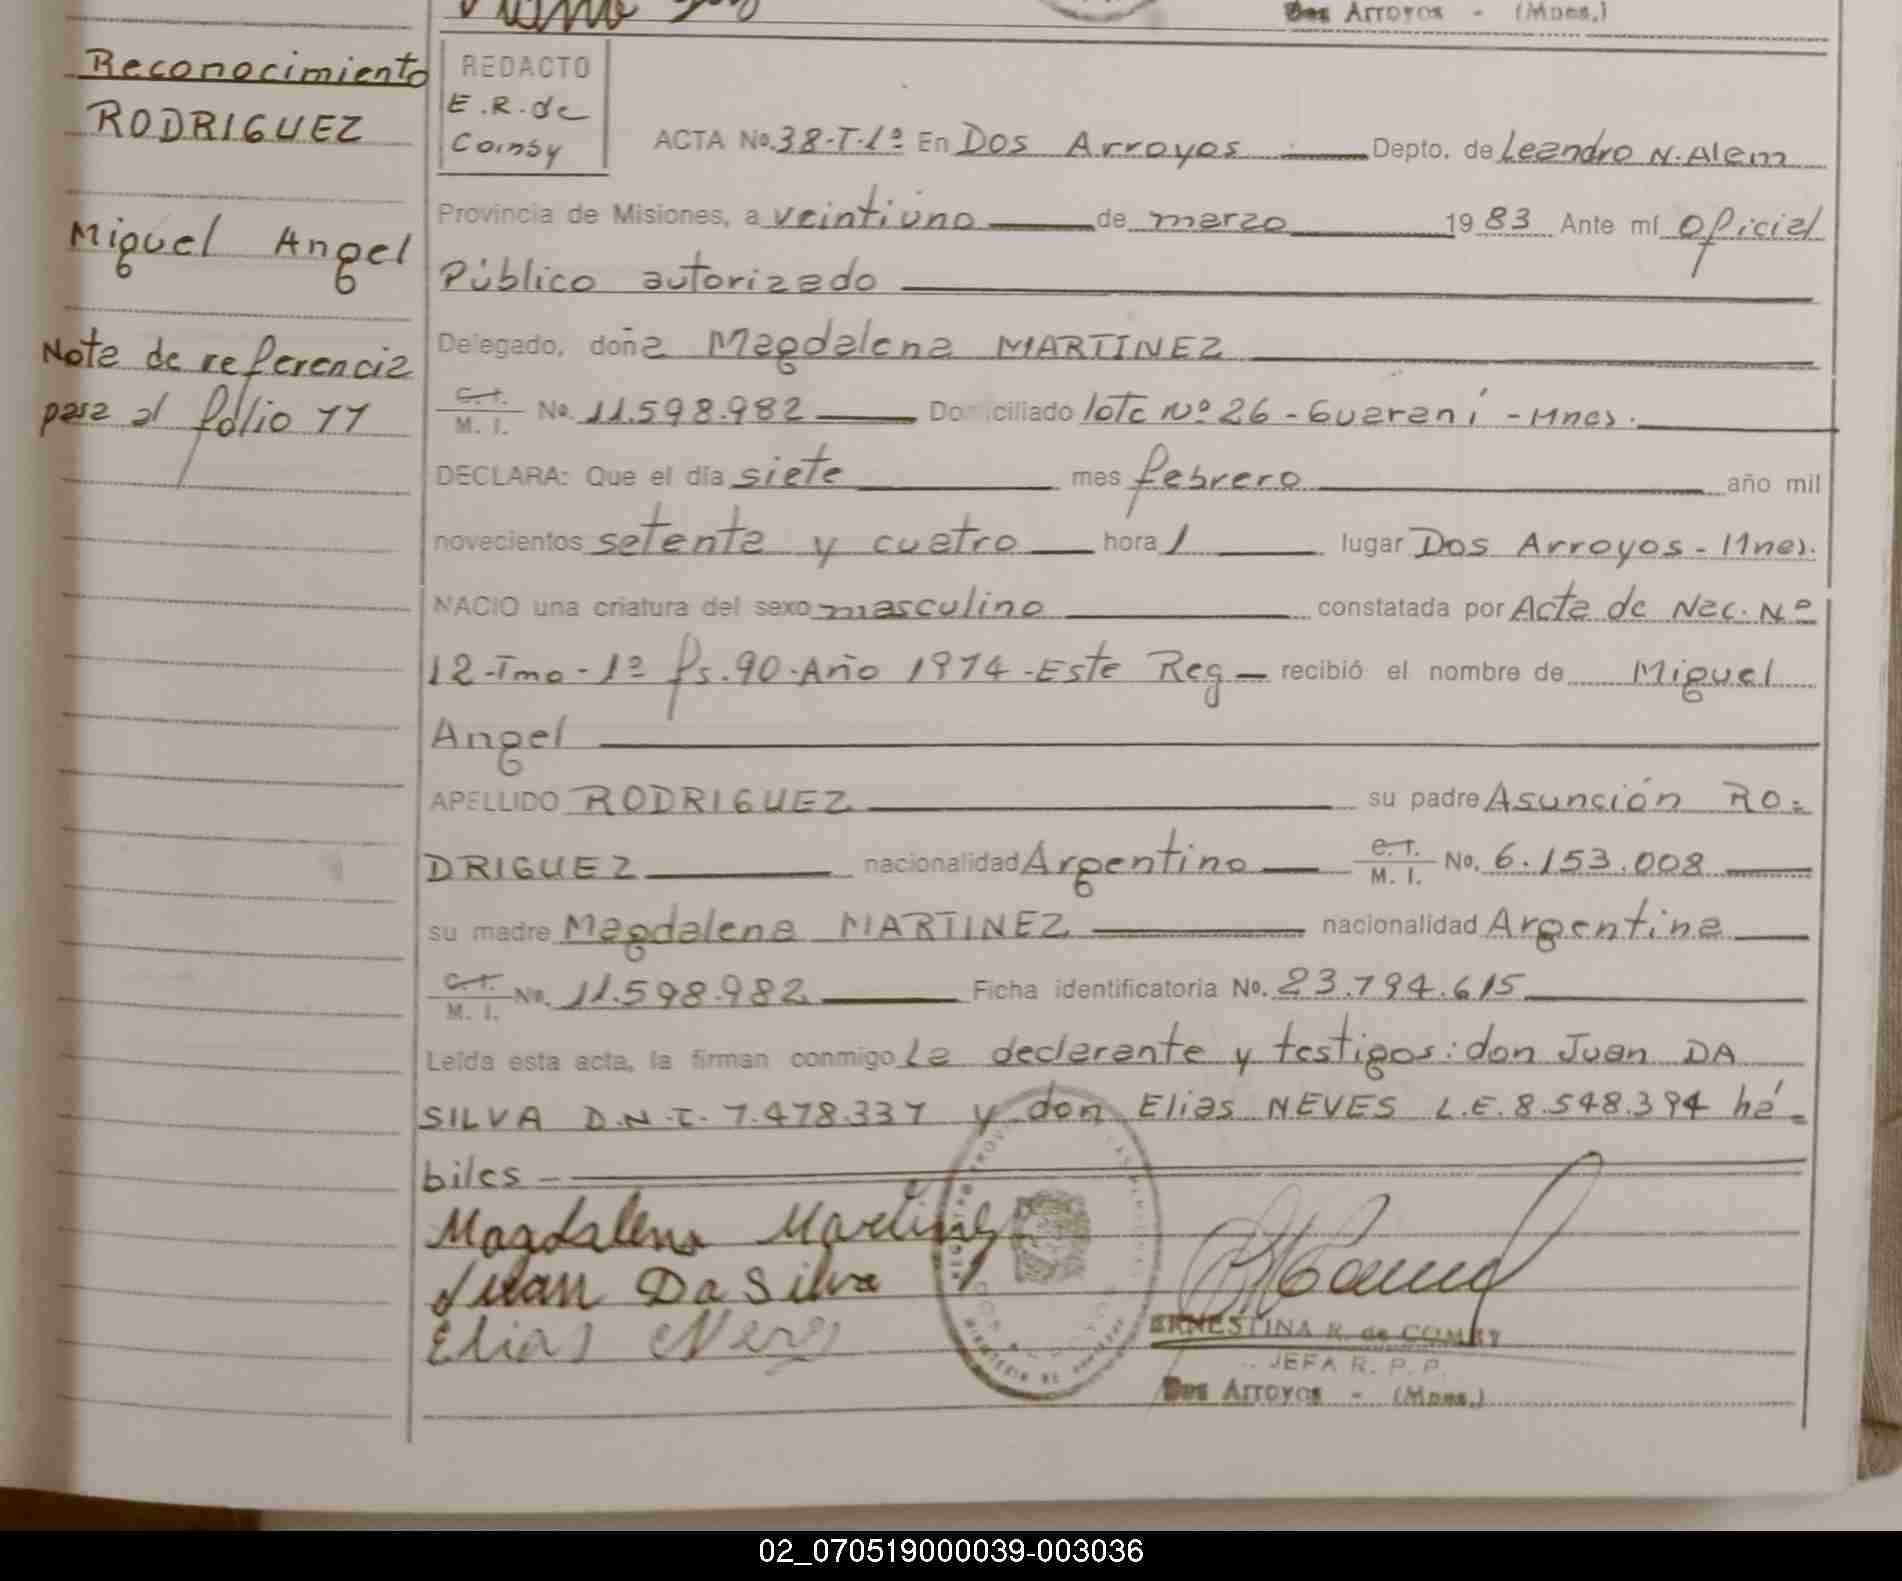 Dos Arroyos - (Mnes.)
Reconocimiento
RODRIGUEZ
Miguel Angel
Nota de referencia
para al folio 77
REDACTO
E.R. de
Comby
ACTA No. 38-T-1º En Dos Arroyos Depto. de Leandro N. Alem
Provincia de Misiones, a veintiuno de marzo 1983 Ante mí Oficial
Público autorizado
Delegado, doña Magdalena MARTINEZ
C.I. M. I. No. 11.598.982 Domiciliado lote Nº 26 - Guaraní - Mnes.
DECLARA: Que el día siete mes febrero año mil
novecientos setenta y cuatro hora 1 lugar Dos Arroyos - Mnes.
NACIO una criatura del sexo masculino constatada por Acta de Nac. Nº
12-Tmo-1º fs. 90-Año 1974-Este Reg recibió el nombre de Miguel
Angel
APELLIDO RODRIGUEZ su padre Asunción RO-
DRIGUEZ nacionalidad Argentino C.I. M. I. No. 6.153.008
su madre Magdalena MARTINEZ nacionalidad Argentina
C.I. M. I. No. 11.598.982 Ficha identificatoria No. 23.794.615
Leída esta acta, la firman conmigo La declarante y testigos: don Juan DA
SILVA D.N.I. 7.478.337 y don Elias NEVES L.E. 8.548.394 há-
biles
Magdalena Martinez
Juan Da Silva
Elias Neves
ERNESTINA R. de COMBY
JEFA R. P. P.
Dos Arroyos - (Mnes.)
02_070519000039-003036